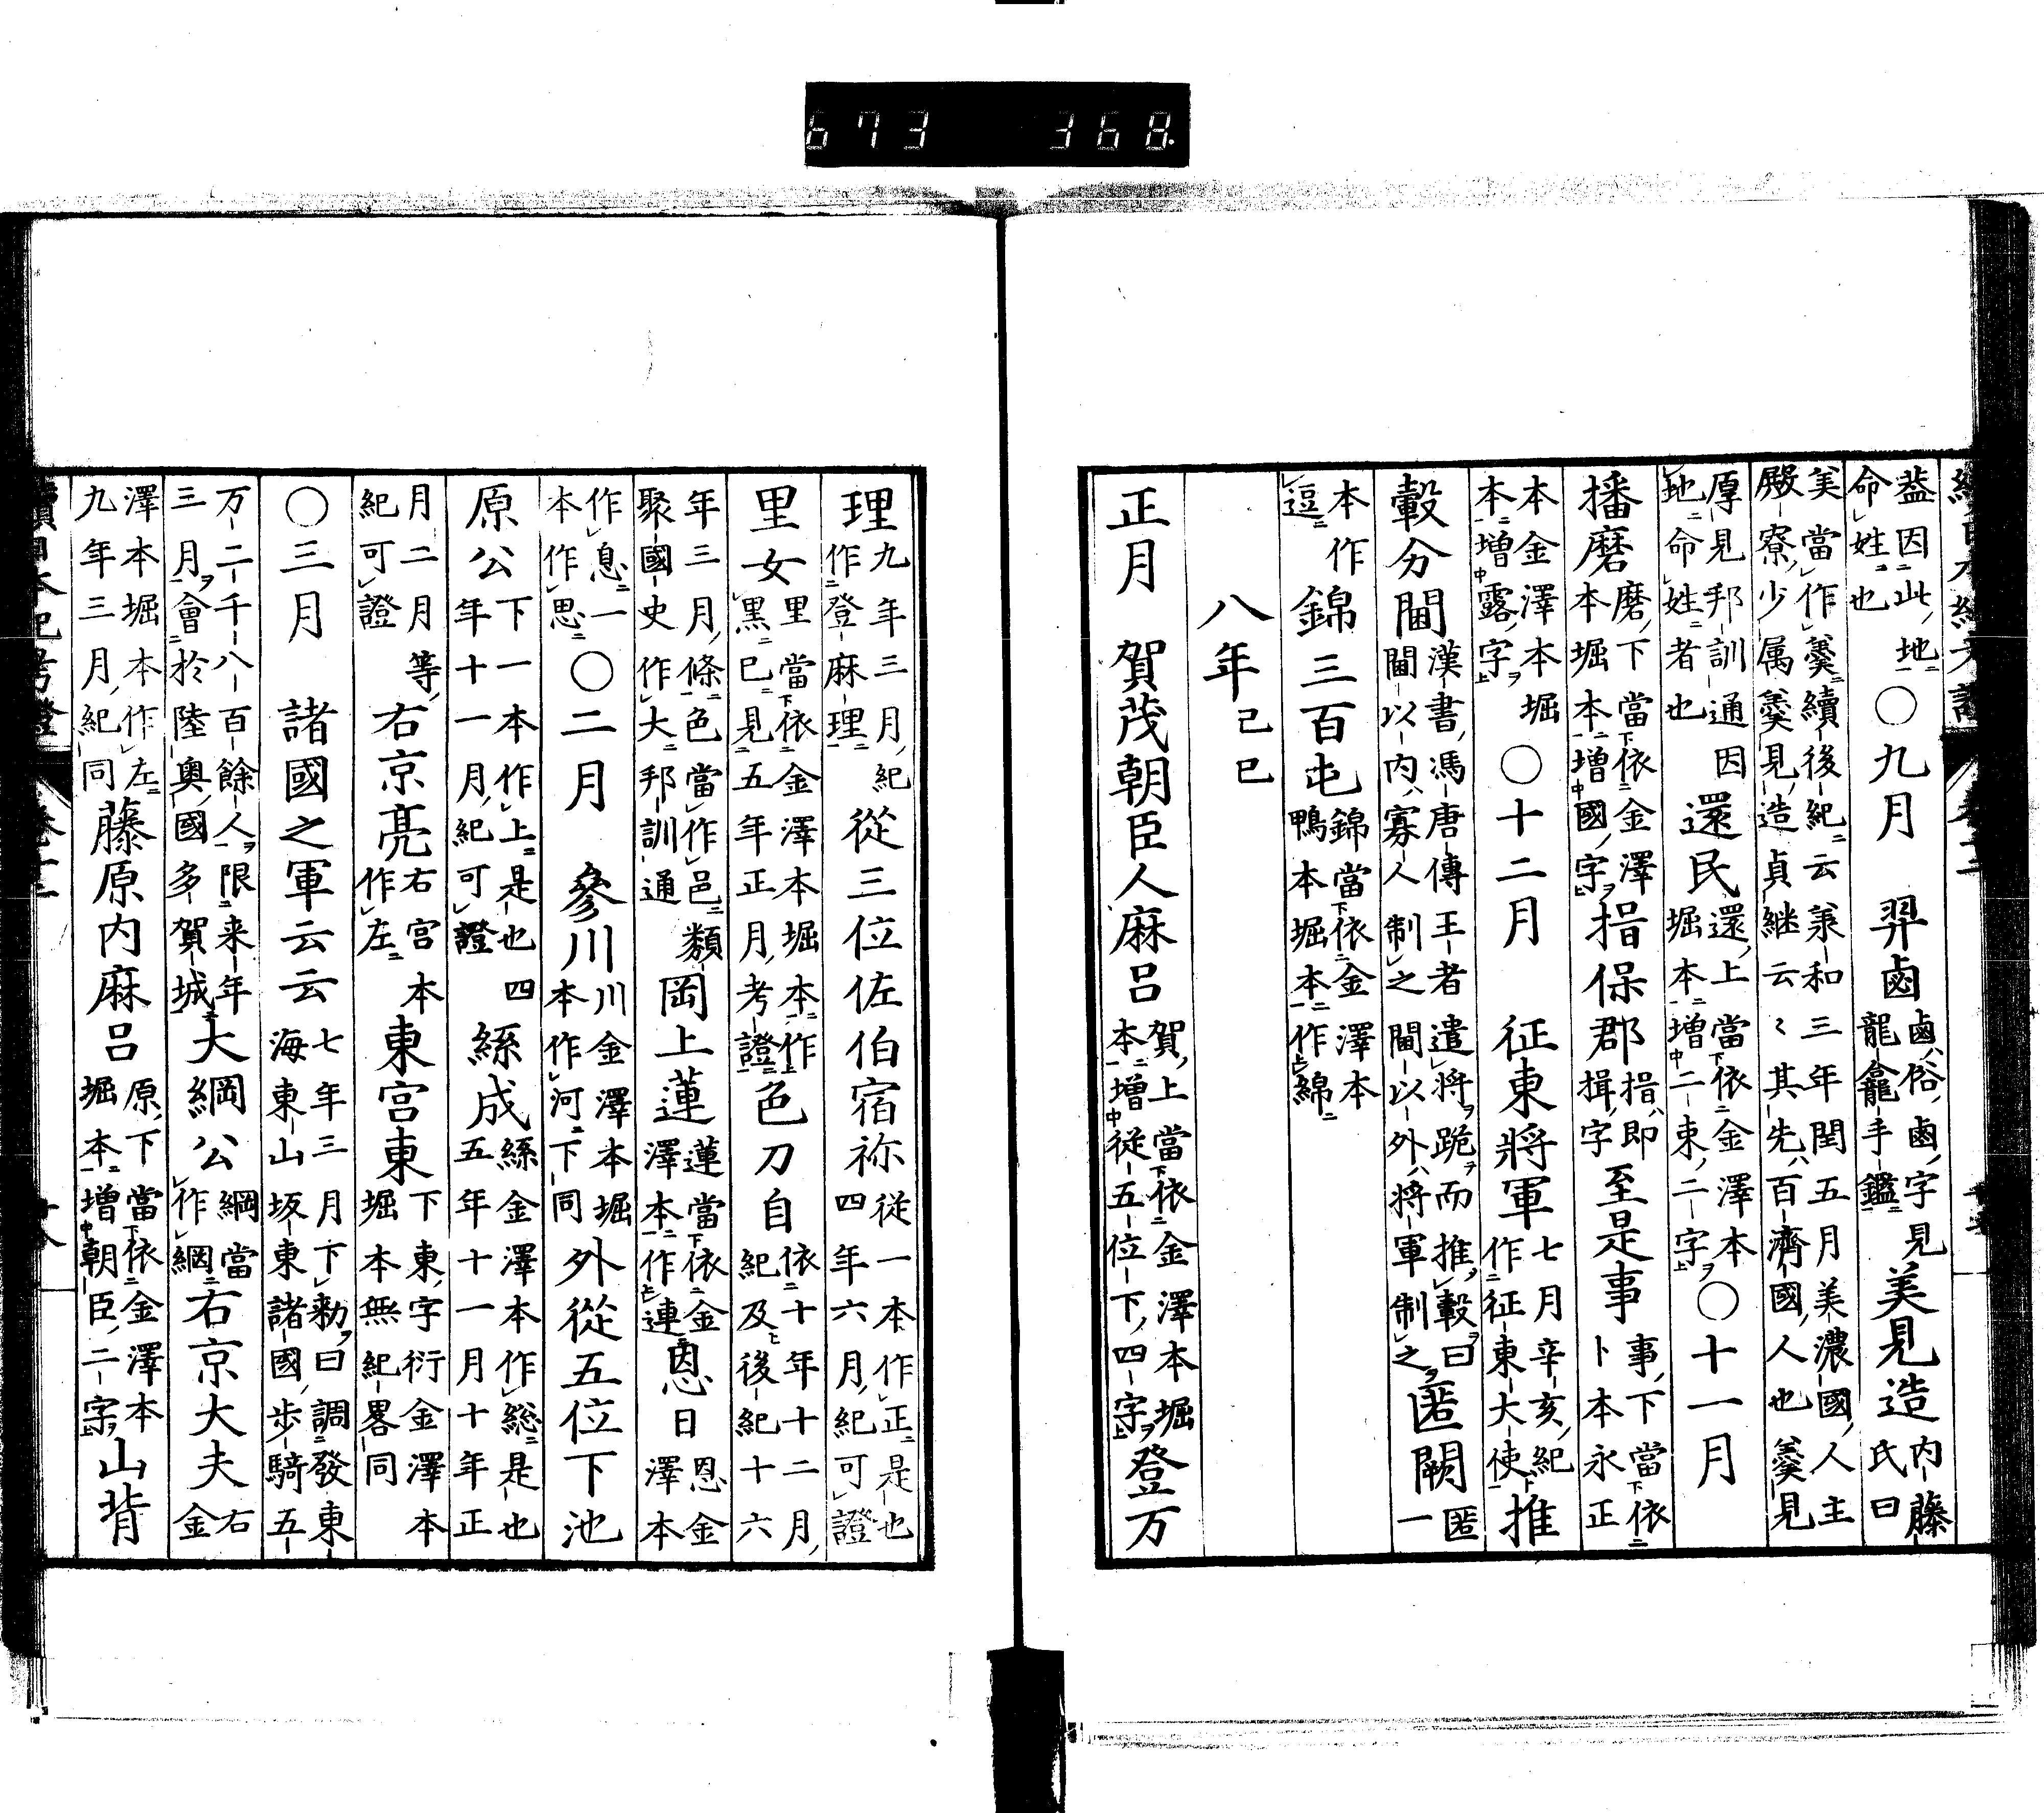 673 368.
葢因此地
命姓也
○九月 羿鹵
鹵俗鹵字見
龍龕手鑑
美見造
内藤
氏曰
美當作羹續後紀云羕和三年閏五月美濃國人主
殿寮少属羹見造貞継云〻其先百濟國人也羹見
厚見邦訓通因
地命姓者也
還民
還上當依金澤本
堀本増二束二字
○十一月
播磨
磨下當依金澤
本堀本増國字
揖保郡
揖即
揖字
至是事
事下當依
卜本永正
本金澤本堀
本増露字
○十二月 征東將軍
七月辛亥紀
作征東大使
推
轂分閫
漢書馮唐傳王者遣將跪而推轂曰
閫以内寡人制之閫以外將軍制之
匿闕
匿一
本作
逗
錦三百屯
錦當依金澤本
鴨本堀本作綿
八年己巳
正月 賀茂朝臣人麻呂
賀上當依金澤本堀
本増従五位下四字
登万
理
九年三月紀
作登麻理
從三位佐伯宿祢
従一本作正是也
四年六月紀可證
里女
里當依金澤本堀本作
黒巳見五年正月考證
色刀自
依十年十二月
紀及後紀十六
年三月條色當作邑類
聚國史作大邦訓通
岡上蓮
蓮當依金
澤本作連
恩日
恩金
澤本
作息一
本作思
○二月 參川
川金澤本堀
本作河下同
外從五位下池
原公
下一本作上是也四
年十一月紀可證
綵成
綵金澤本作総是也
五年十一月十年正
月二月等
紀可證
右京亮
右宮本
作左
東宮東
下東字衍金澤本
堀本無紀畧同
○三月 諸國之軍云云
七年三月下勅曰調發東
海東山坂東諸國歩騎五
万二千八百餘人限来年
三月會於陸奥國多賀城
大綱公
綱當
作網
右京大夫
右金
澤本堀本作左
九年三月紀同
藤原内麻呂
原下當依金澤本
堀本増朝臣二字
山背